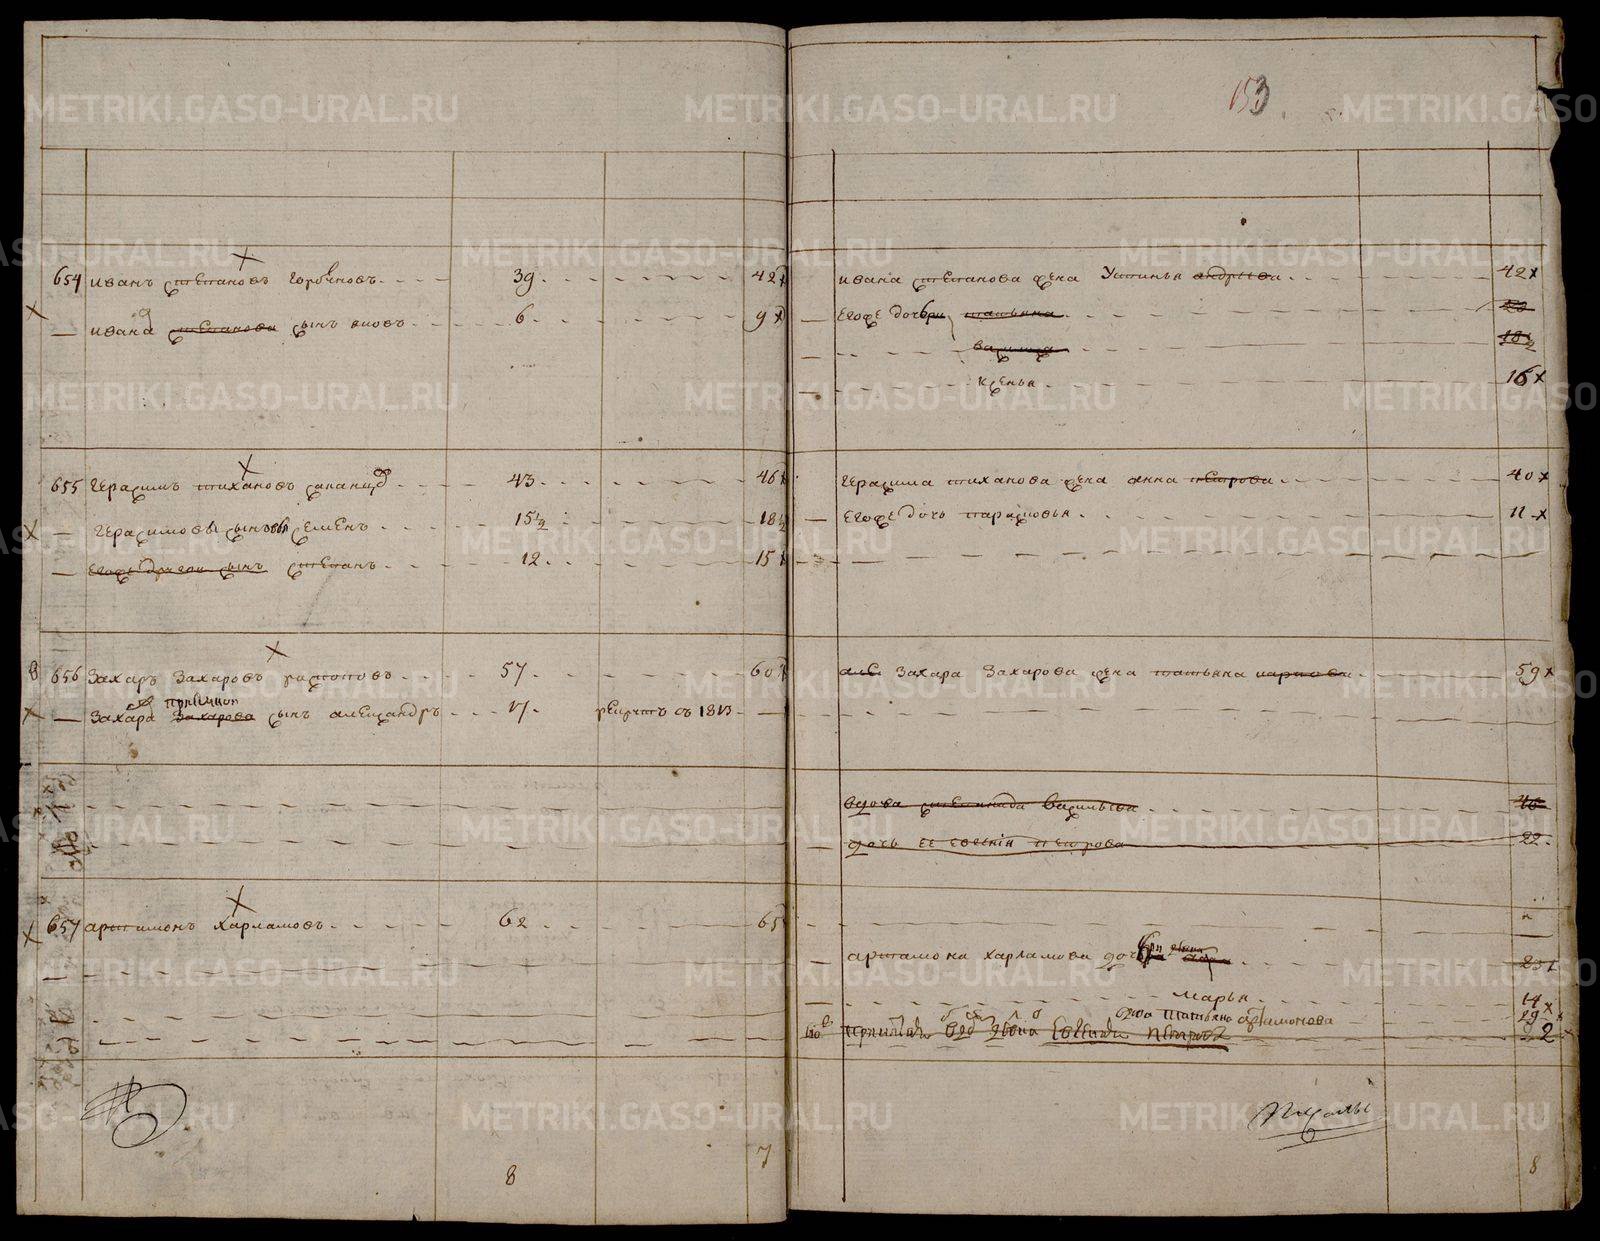 153
654 иванъ степановъ горбуновъ 39 42 х
— ивана степанова сынъ яковъ 6 9 х
655 герасимъ тихановъ 43 46 х
— герасимовы сыновья семенъ 15½ 18½
— его же другой сынъ степанъ 12 15 х
656 Захаръ Захаровъ 57 60 х
приемной
— Захара Захарова сынъ александръ 17 рекрутъ съ 1813
657 артамонъ Харламовъ 62 65
8
7
ивана степанова жена Устинья андреева 42 х
его же дочери татьяна 20
василиса 18½
ксенья 16 х
герасима тиханова жена анна петрова 40 х
его же дочь парасковья 11 х
Захара Захарова жена татьяна карпова 59 х
вдова степанида васильева 46
дочь ее евгенія петрова 22
артамона харламова дочери 23
марья 14 х
татьяна артамонова 19 х
петрова 2
8
METRIKI.GASO-URAL.RU